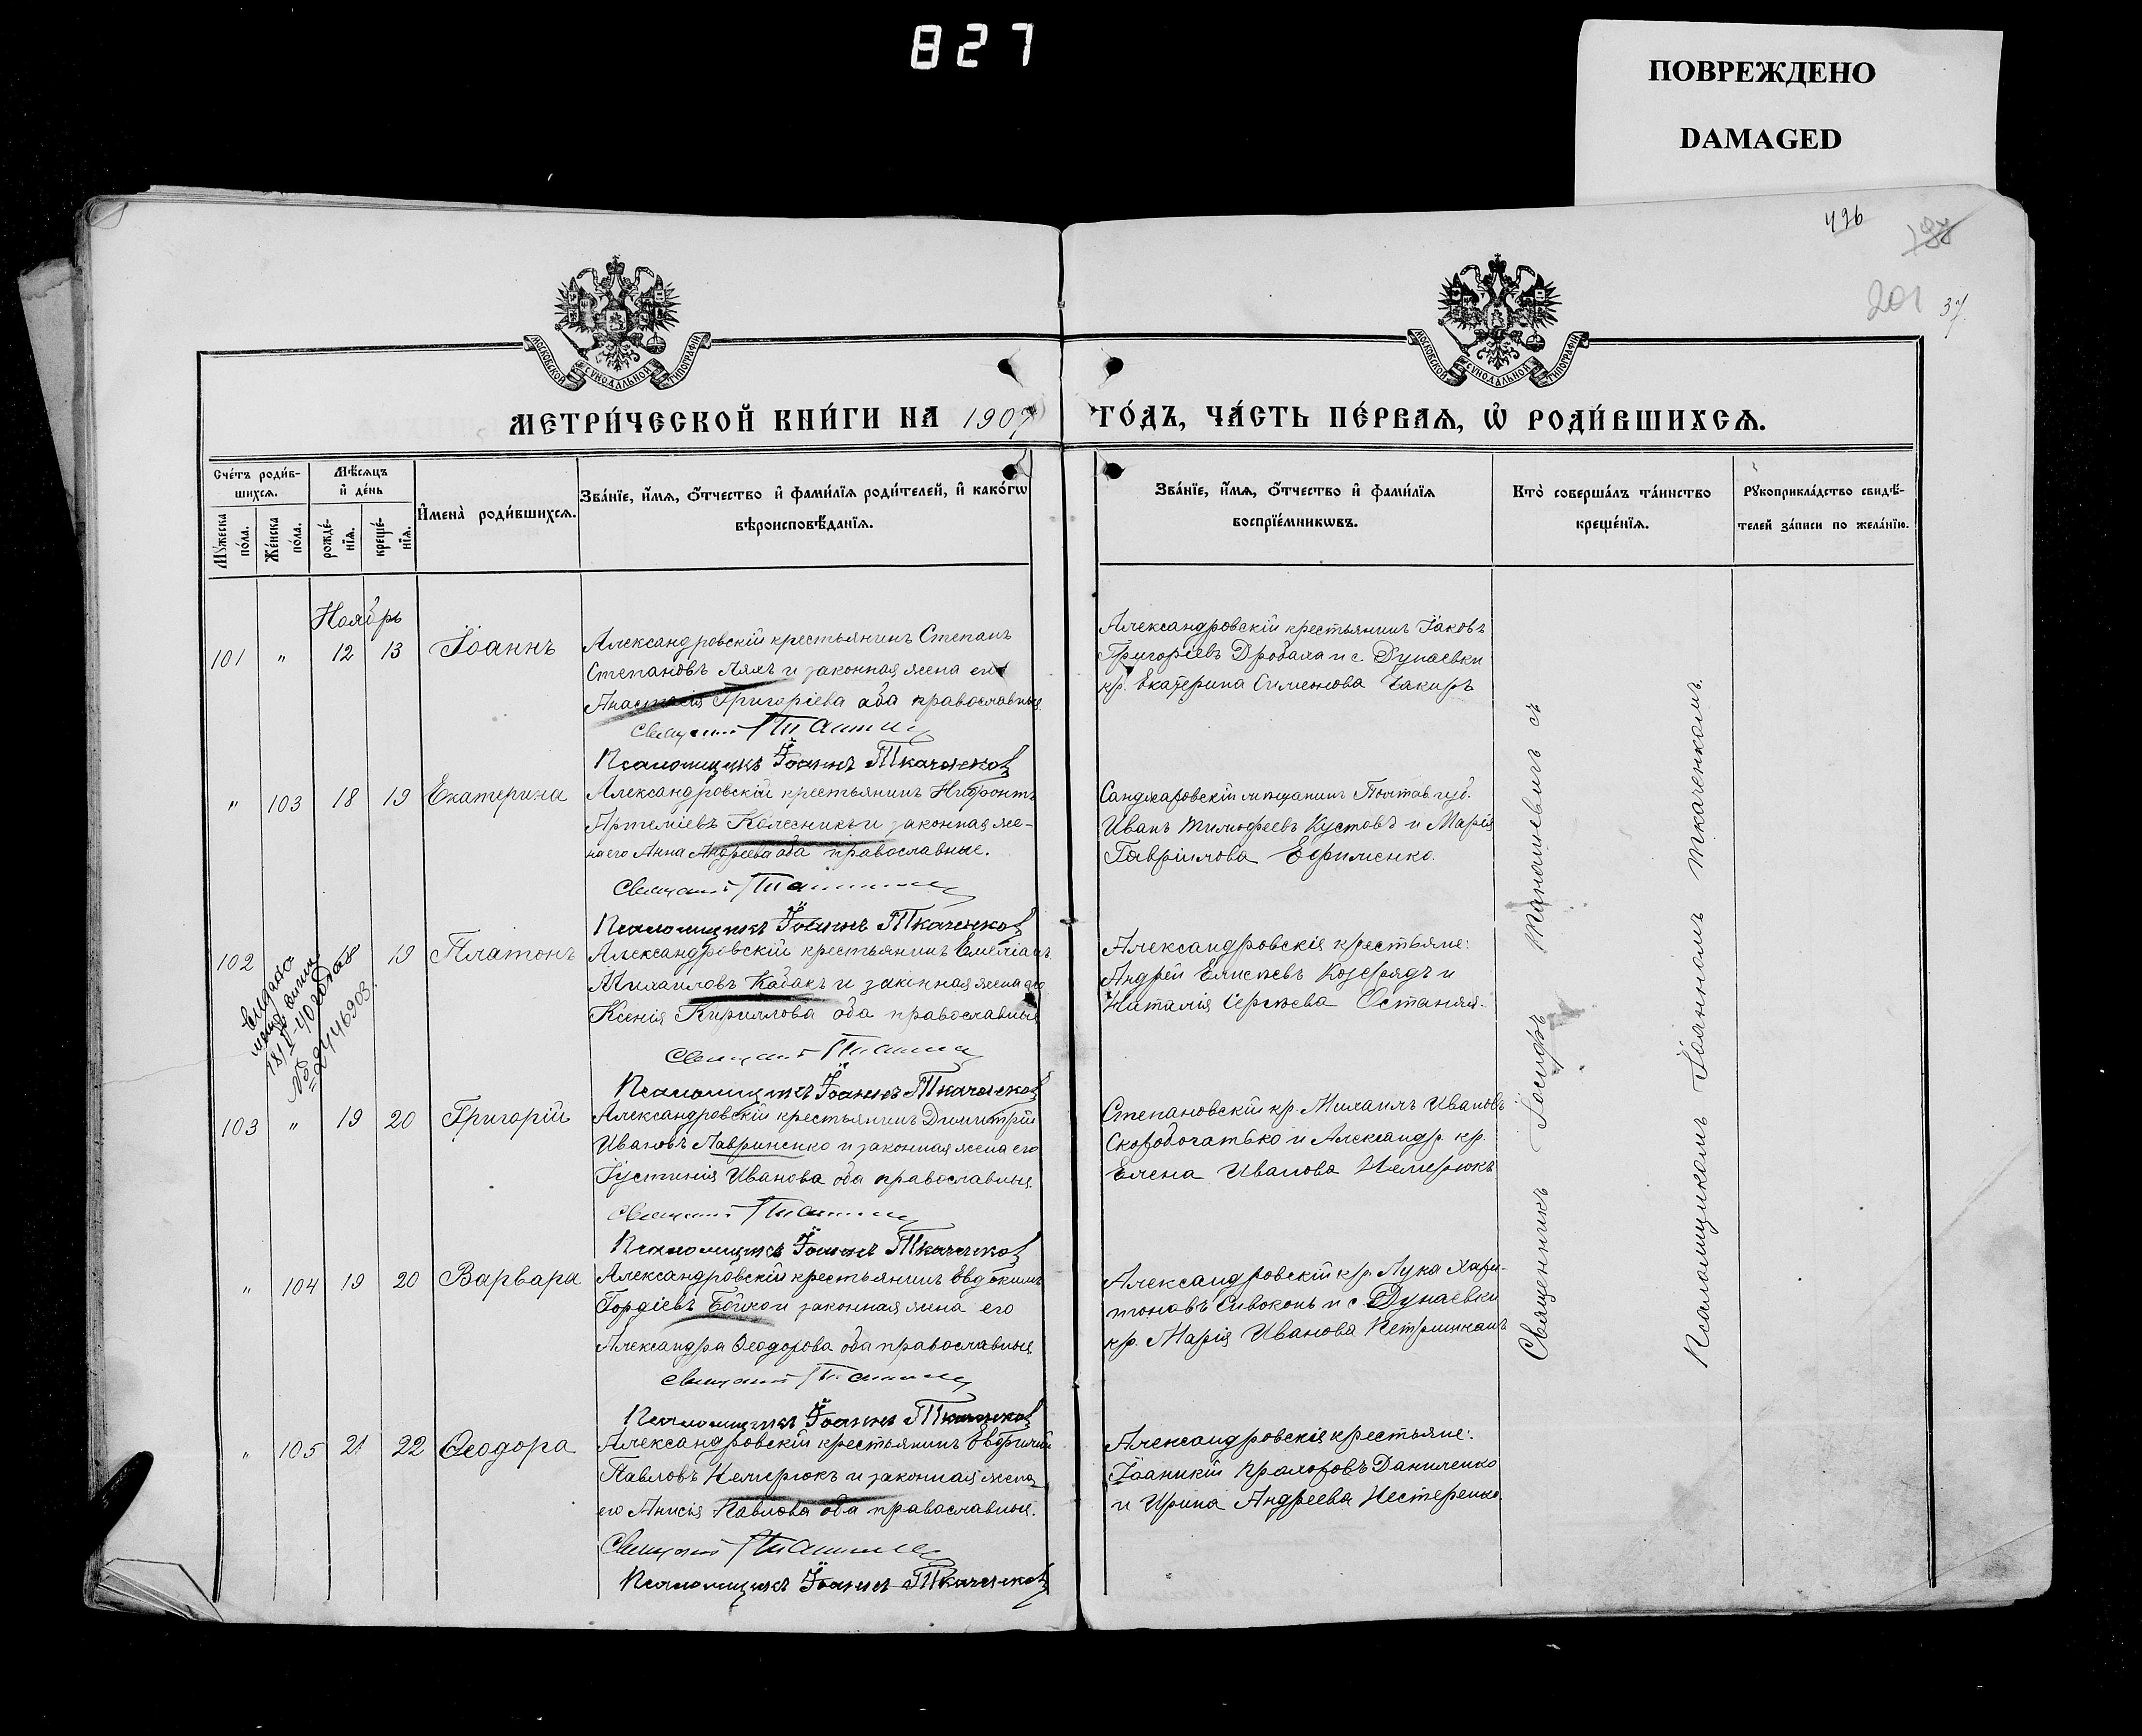 827
ПОВРЕЖДЕНО
DAMAGED
496
201
37.
МОСКОВСКОЙ СѴНОДАЛЬНОЙ ТИПОГРАФІИ
МОСКОВСКОЙ СѴНОДАЛЬНОЙ ТИПОГРАФІИ
МЕТРИ́ЧЕСКОЙ КНИ́ГИ НА 1907 ГО́ДЪ, ЧА́СТЬ ПЕ́РВАѦ, Ѡ҆ РОДИ́ВШИХСѦ.
Сче́тъ роди́в-
шихсѧ.
Мꙋ́жеска по́ла.
Же́нска по́ла.
Мѣ́сѧцъ
и҆ де́нь
рожде́-
нїѧ.
креще́-
нїѧ.
И҆мена̀ роди́вшихсѧ.
Зва́нїе, и҆́мѧ, ѻ҆́тчество и҆ фами́лїѧ роди́телей, и҆ како́гѡ
вѣроисповѣ́данїѧ.
Зва́нїе, и҆́мѧ, ѻ҆́тчество и҆ фами́лїѧ
воспрїе́мникѡвъ.
Кто̀ соверша́лъ та́инство
креще́нїѧ.
Рꙋкоприкла́дство свидѣ́-
телей за́писи по жела́нїю.
Ноябрь
101 " 12 13 Іоаннъ
Александровскій крестьянинъ Степанъ
Степановъ Ляхъ и законная жена его
Анастасія Григоріева оба православные
Священникъ
Псаломщикъ Іоаннъ Ткаченковъ
Александровскій крестьянинъ Іаковъ
Григоріевъ Дробаха и с. Дунаевки
кр. Екатерина Симеонова Чакиръ
" 103 18 19 Екатерина
Александровскій крестьянинъ Нифонтъ
Артеміевъ Колесникъ и законная же-
на его Анна Андреева оба православные.
Священникъ
Псаломщикъ Іоаннъ Ткаченковъ
Санджаровскій мѣщанинъ Полтав. губ.
Иванъ Тимофеевъ Кустовъ и Марія
Гавріилова Ефименко.
102 18 19 Платонъ
Выдана
№ 2446903
Александровскій крестьянинъ Емеліанъ
Михаиловъ Кабакъ и законная жена его
Ксенія Кириллова оба православные
Священникъ
Псаломщикъ Іоаннъ Ткаченковъ
Александровскіе крестьяне:
Андрей Елисѣевъ Козерядъ и
Наталія Сергѣева Останняя.
103 " 19 20 Григорій
Александровскій крестьянинъ Димитрій
Ивановъ Лавриненко и законная жена его
Іустинія Иванова оба православные
Священникъ
Псаломщикъ Іоаннъ Ткаченковъ
Степановскій кр. Михаилъ Ивановъ
Скоробогатько и Александр. кр.
Елена Иванова Немерюкъ
" 104 19 20 Варвара
Александровскій крестьянинъ Евдокимъ
Гордіевъ Бойко и законная жена его
Александра Ѳеодорова оба православные
Священникъ
Псаломщикъ Іоаннъ Ткаченковъ
Александровскій кр. Лука Хари-
тоновъ Сивоконь и с. Дунаевки
кр. Марія Иванова
" 105 21 22 Ѳеодора
Александровскій крестьянинъ Евфимій
Павловъ Немерюкъ и законная жена
его Анисія Павлова оба православные.
Священникъ
Псаломщикъ Іоаннъ Ткаченковъ
Александровскіе крестьяне:
Іоанникій Прохоровъ Даниленко
и Ирина Андреева Нестеренко.
Священникъ Іосифъ Танашевичъ съ
Псаломщикомъ Іоанномъ Ткаченкомъ.